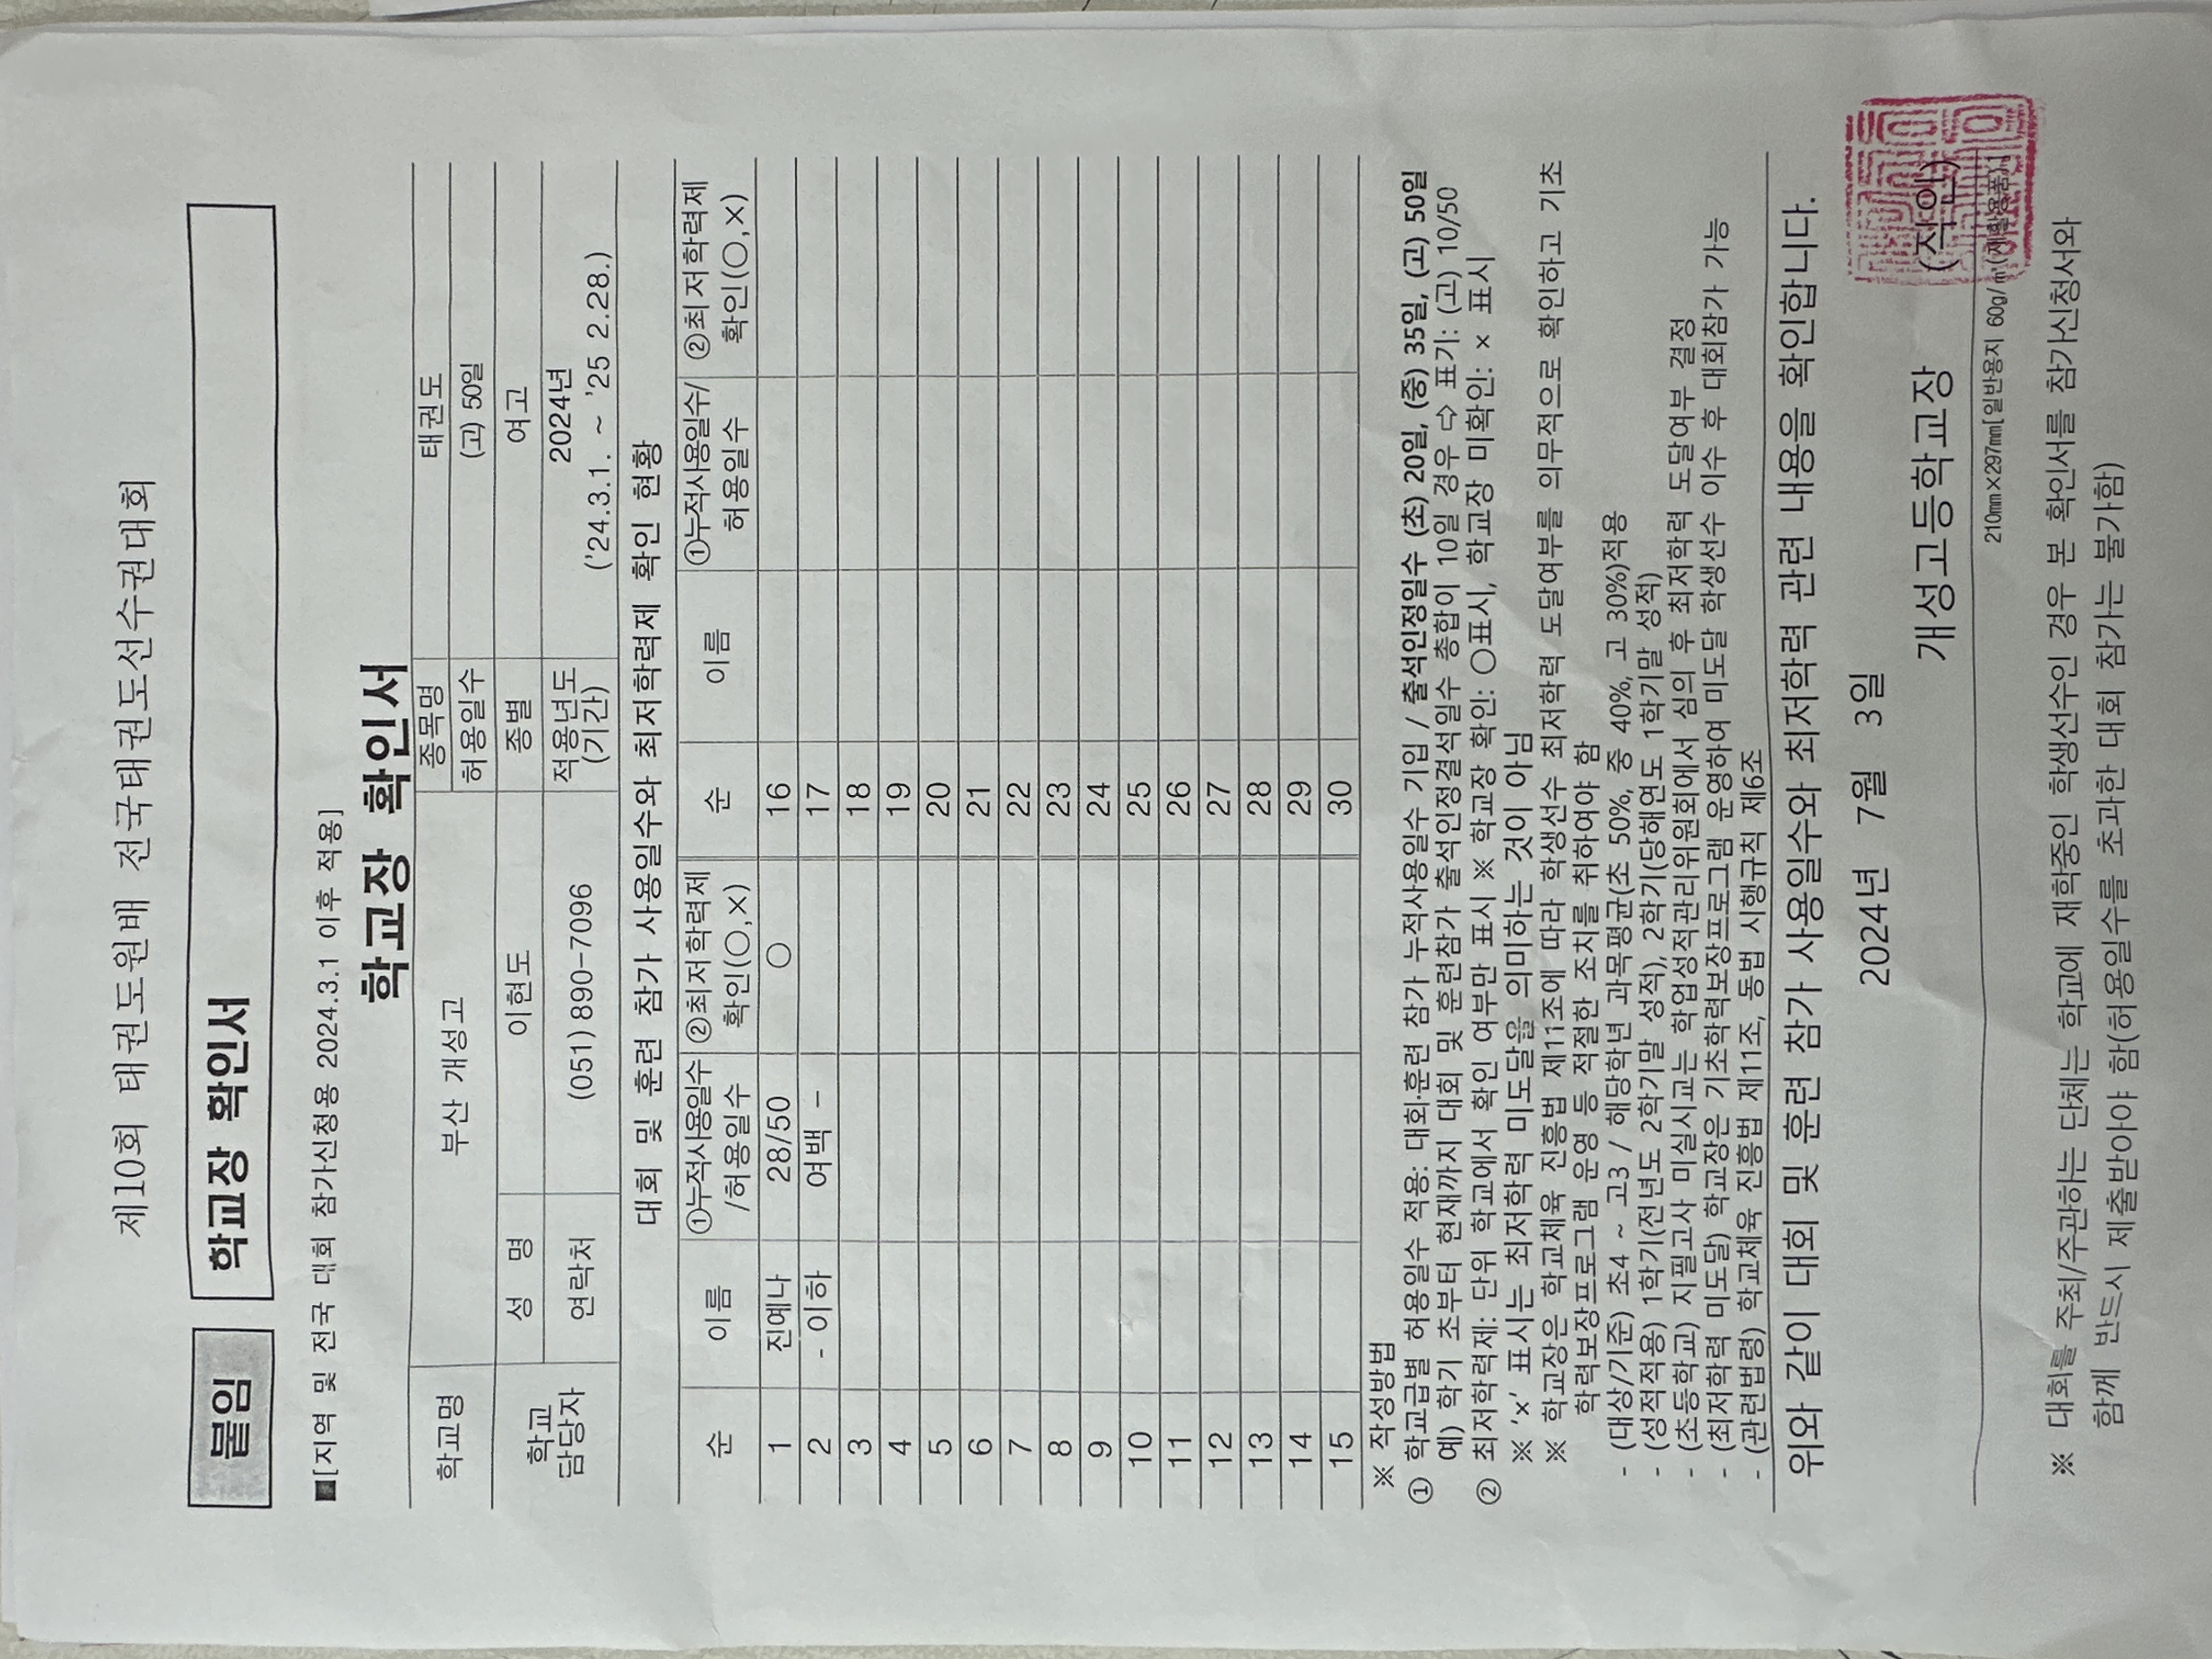 제10회 태권도원배 전국태권도선수권대회
붙임 학교장 확인서
■[지역 및 전국 대회 참가신청용 2024.3.1 이후 적용]
학교장 확인서
학교명 부산 개성고 종목명 태권도
허용일수 (고) 50일
학교 담당자 성 명 이현도 종별 여고
연락처 (051) 890-7096 적용년도 (기간) 2024년 ('24.3.1. ~ '25 2.28.)
대회 및 훈련 참가 사용일수와 최저학력제 확인 현황
순 이름 ①누적사용일수/허용일수 ②최저학력제 확인(○,×) 순 이름 ①누적사용일수/허용일수 ②최저학력제 확인(○,×)
1 진예나 28/50 ○ 16
2 - 이하 여백 - 17
3 18
4 19
5 20
6 21
7 22
8 23
9 24
10 25
11 26
12 27
13 28
14 29
15 30
※ 작성방법
① 학교급별 허용일수 적용: 대회·훈련 참가 누적사용일수 기입 / 출석인정일수 (초) 20일, (중) 35일, (고) 50일
예) 학기 초부터 현재까지 대회 및 훈련참가 출석인정결석일수 총합이 10일 경우 ⇨ 표기: (고) 10/50
② 최저학력제: 단위 학교에서 확인 여부만 표시 ※ 학교장 확인: ○표시, 학교장 미확인: × 표시
※ '×' 표시는 최저학력 미도달을 의미하는 것이 아님
※ 학교장은 학교체육 진흥법 제11조에 따라 학생선수 최저학력 도달여부를 의무적으로 확인하고 기초
학력보장프로그램 운영 등 적절한 조치를 취하여야 함
- (대상/기준) 초4 ~ 고3 / 해당학년 과목평균(초 50%, 중 40%, 고 30%)적용
- (성적적용) 1학기(전년도 2학기말 성적), 2학기(당해연도 1학기말 성적)
- (초등학교) 지필고사 미실시교는 학업성적관리위원회에서 심의 후 최저학력 도달여부 결정
- (최저학력 미도달) 학교장은 기초학력보장프로그램 운영하여 미도달 학생선수 이수 후 대회참가 가능
- (관련법령) 학교체육 진흥법 제11조, 동법 시행규칙 제6조
위와 같이 대회 및 훈련 참가 사용일수와 최저학력 관련 내용을 확인합니다.
2024년 7월 3일
개성고등학교장 (직인)
210mm×297mm[일반용지 60g/㎡(재활용품)]
※ 대회를 주최/주관하는 단체는 학교에 재학중인 학생선수인 경우 본 확인서를 참가신청서와
함께 반드시 제출받아야 함(허용일수를 초과한 대회 참가는 불가함)